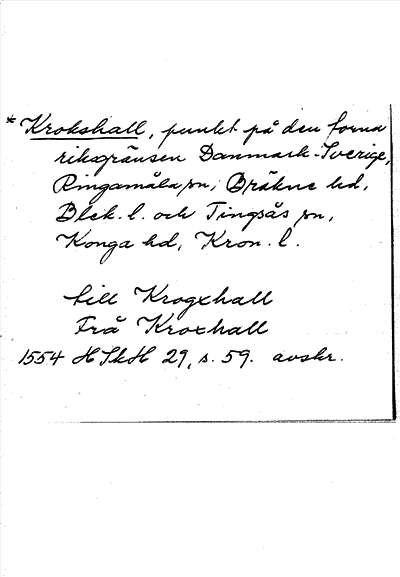 * Krokshall, punkt på den forna
riksgränsen Danmark-Sverige,
Ringamåla sn, Bräkne hd,
Blek. l. och Tingsås sn,
Konga hd, Kron. l.
till Krogxhall
Frå Kroxhall
1554 HSkH 29, s. 59. avskr.